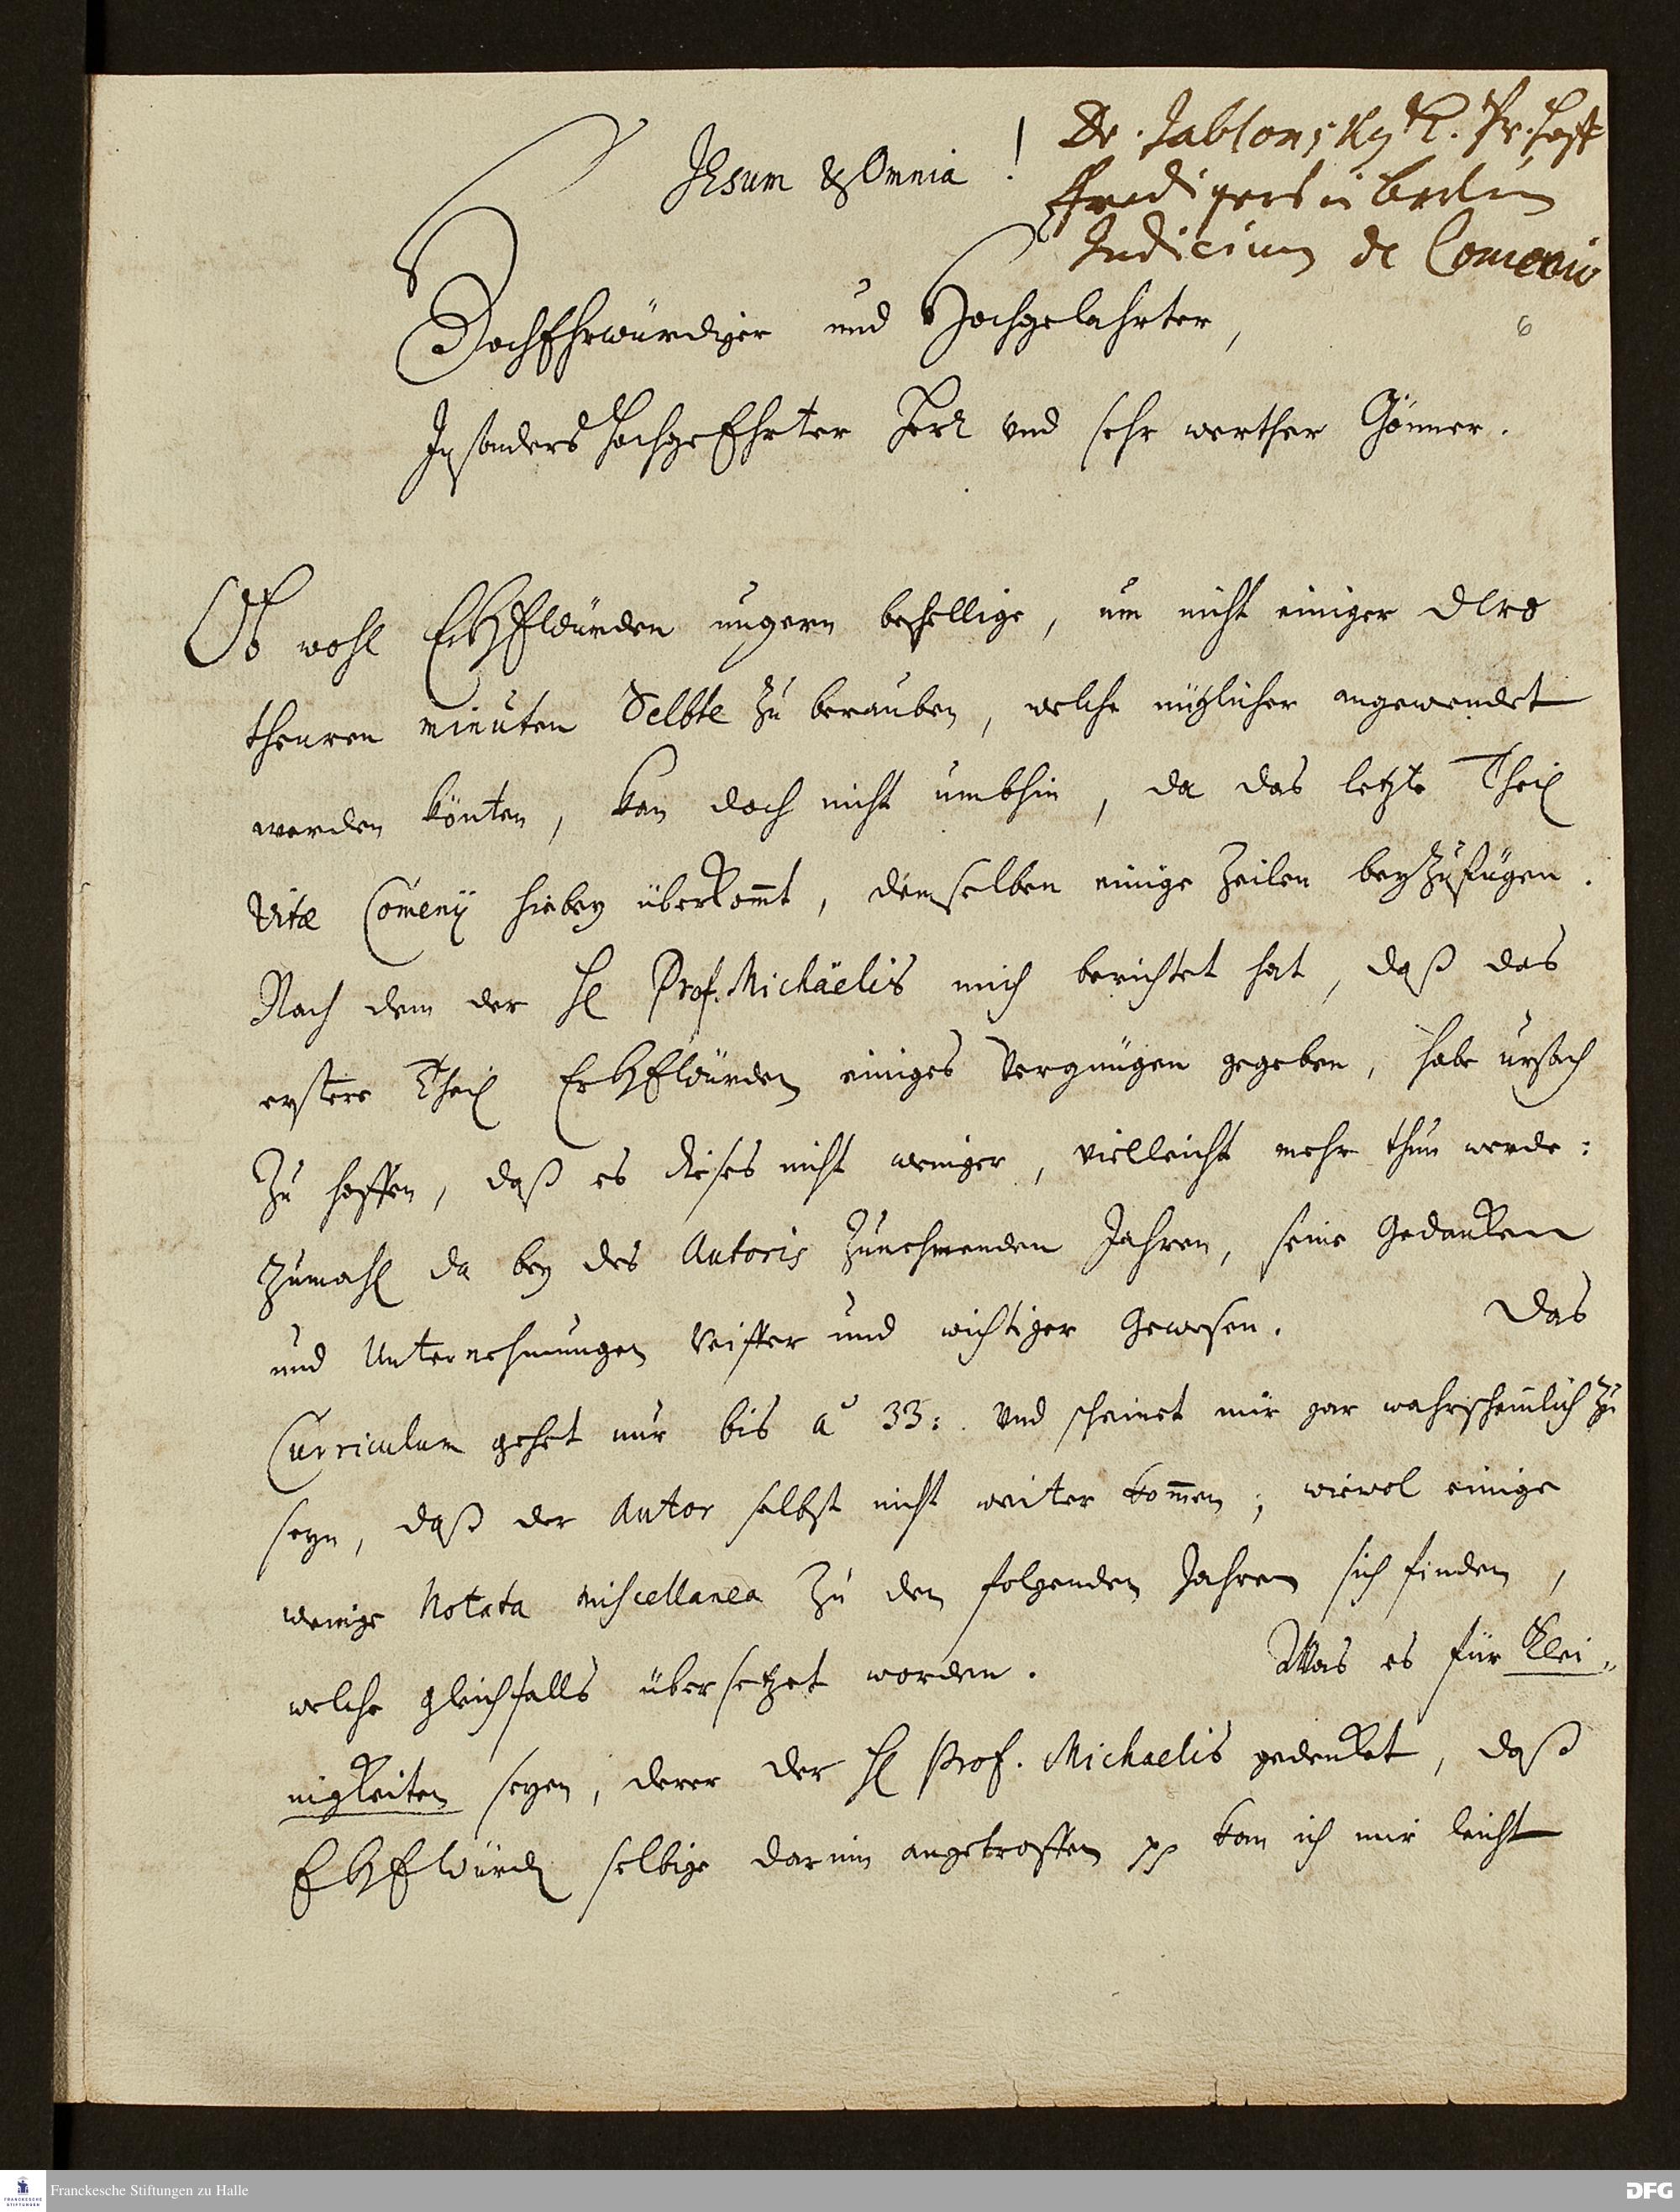 Jesum & Omnia !
Dr. Jablonsky K. Pr. Hoff
Predigers in Berlin
Judicium de Comenio
6
HochEhrwürdiger und Hochgelahrter,
Insonders HochgeEhrter Herr und sehr werther Gönner.
Ob wohl EwHEWürden ungern behellige, um nicht einiger Dero
theuren minuten Selbte zu berauben, welche nützlicher angewendet
werden könten, kan doch nicht umbhin, da das letzte Theil
Vitæ Comenij hiebey überkom̅t, demselben einige Zeilen beyzufügen.
Nach dem der H. Prof. Michäelis mich berichtet hat, daß das
erstere Theil EwHEWürden einiges Vergnügen gegeben, habe ursach
zu hoffen, daß es dieses nicht weniger, vielleicht mehr thun werde:
zumahl da bey des Autoris zunehmenden Jahren, seine Gedanken
und Unternehmungen reiffer und wichtiger gewesen. Das
Curriculum gehet nur bis aº 33: und scheinet mir gar wahrscheinlich zu
seyn, daß der Autor selbst nicht weiter kom̅en; wiewol einige
wenige Notata miscellanea zu den folgenden Jahren sich finden,
welche gleichfalls übersetzet worden. Was es für Klei„
nigkeiten seyen, derer der H. Prof. Michaelis gedenket, daß
EHEWürd. selbige darinn angetroffen pp kan ich mir leicht
Franckesche Stiftungen zu Halle
FRANCKESCHE STIFTUNGEN
DFG